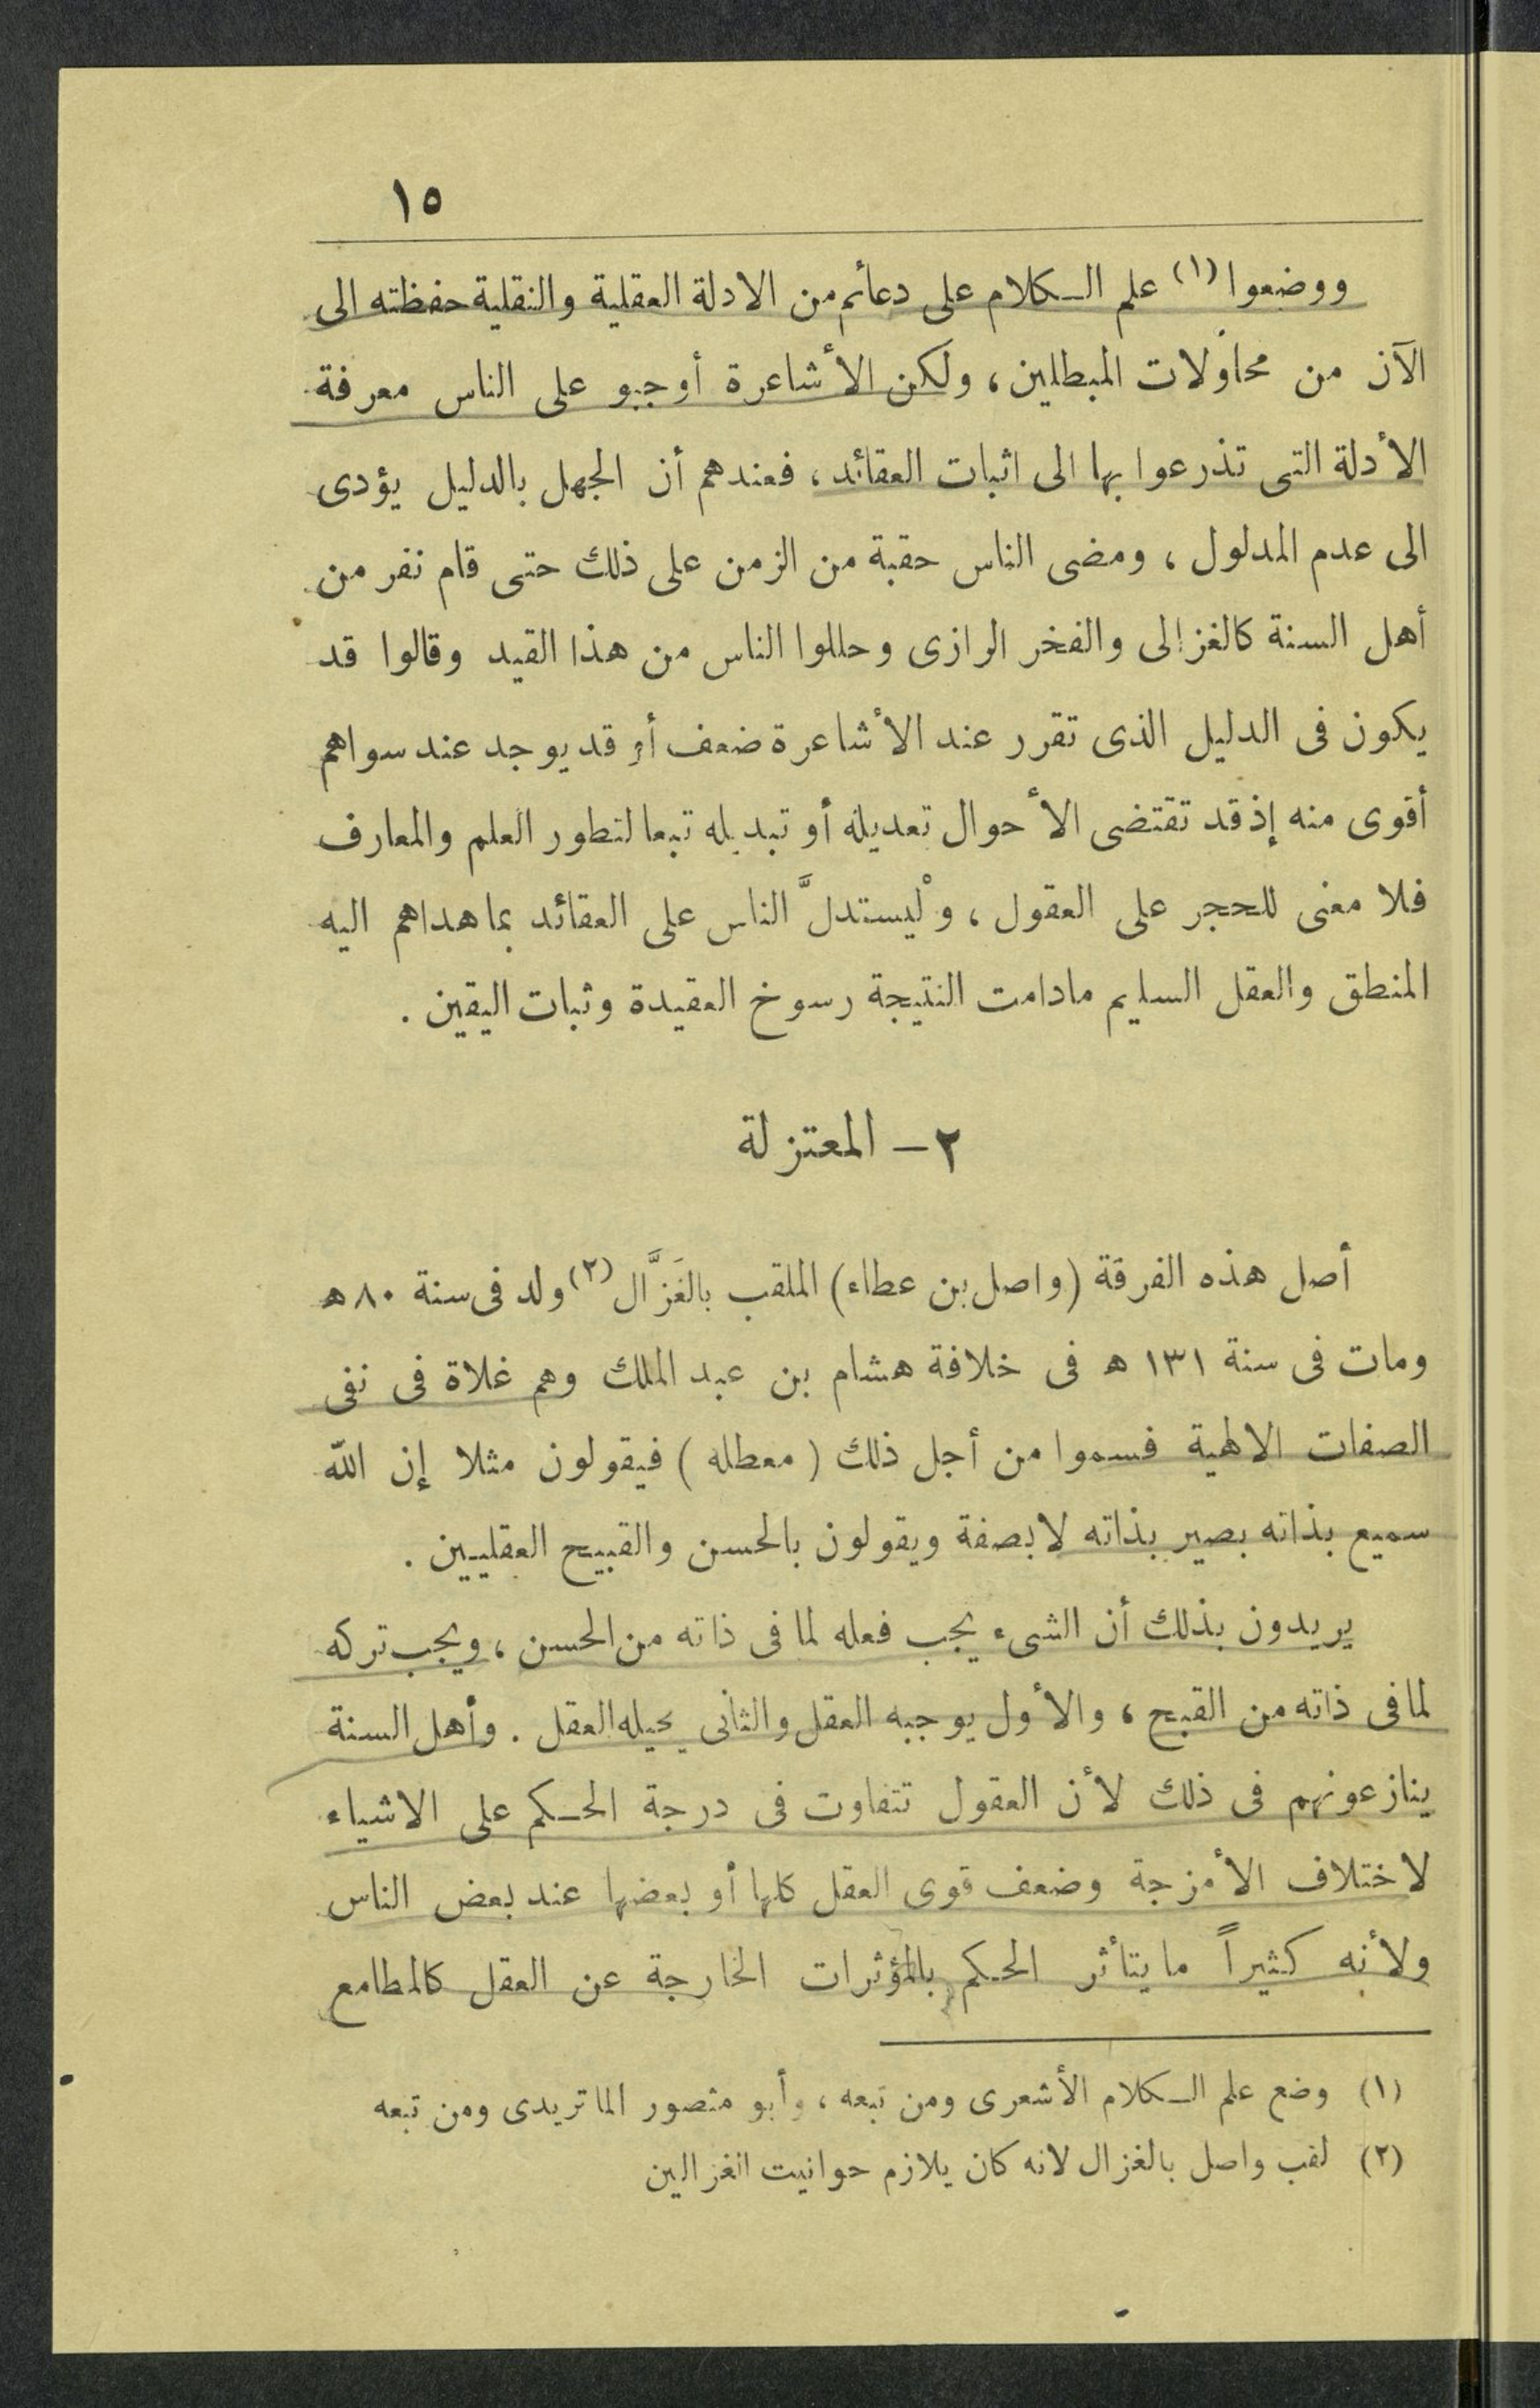 ١٥
ووضعوا (١) علم الكلام على دعائم من الادلة العقلية والنقلية حفظته الى
الآن من محاولات المبطلين، ولكن الأشاعرة أوجبو على الناس معرفة
الأدلة التى تذرعوا بها الى اثبات العقائد، فعندهم أن الجهل بالدليل يؤدى
الى عدم المدلول، ومضى الناس حقبة من الزمن على ذلك حتى قام نفر من
أهل السنة كالغزالى والفخر الرازى وحللوا الناس من هذا القيد وقالوا قد
يكون فى الدليل الذى تقرر عند الأشاعرة ضعف أو قد يوجد عند سواهم
أقوى منه إذ قد تقتضى الأحوال تعديله أو تبديله تبعا لتطور العلم والمعارف
فلا معنى للحجر على العقول، ولْيستدلَّ الناس على العقائد بما هداهم اليه
المنطق والعقل السليم مادامت النتيجة رسوخ العقيدة وثبات اليقين.
٢ – المعتزلة
أصل هذه الفرقة (واصل بن عطاء) الملقب بالغَزَّال (٢) ولد فى سنة ٨٠ ه
ومات فى سنة ١٣١ ه فى خلافة هشام بن عبد الملك وهم غلاة فى نفى
الصفات الالهية فسموا من أجل ذلك (معطله) فيقولون مثلا إن الله
سميع بذاته بصير بذاته لا بصفة ويقولون بالحسن والقبيح العقليين.
يريدون بذلك أن الشىء يجب فعله لما فى ذاته من الحسن، ويجب تركه
لما فى ذاته من القبح، والأول يوجبه العقل والثانى يحيله العقل. وأهل السنة
ينازعونهم فى ذلك لأن العقول تتفاوت فى درجة الحكم على الاشياء
لاختلاف الأمزجة وضعف قوى العقل كلها أو بعضها عند بعض الناس
ولأنه كثيراً ما يتأثر الحكم بالمؤثرات الخارجة عن العقل كالمطامع
(١) وضع علم الكلام الأشعرى ومن تبعه، وأبو منصور الماتريدى ومن تبعه
(٢) لقب واصل بالغزال لانه كان يلازم حوانيت الغزالين